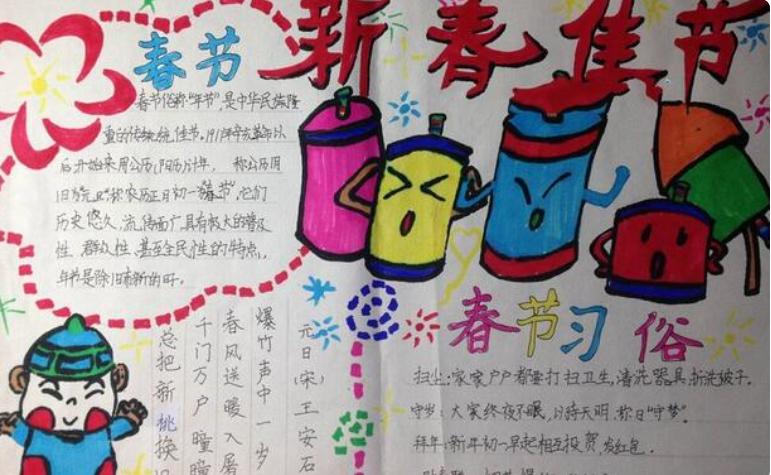 新春佳节
春节
春节俗称"年节",是中华民族隆
重的传统佳节。1911年辛亥革命以
后开始采用公历(阳历)计年, 称公历
称农历正月初一"春节",它们
历史悠久,流传面广具有极大的普及
性,群众性,甚至全民性的特点,
年节是除旧布新的日子。
元日(宋)王安石
爆竹声中一岁
春风送暖入屠
千门万户曈曈
总把新桃换旧
春节习俗
扫尘:家家户户都要打扫卫生,清洗器具,拆洗被子。
守岁:大家终夜不眠,以待天明,称曰"守岁"。
拜年:新年初一早起相互投贺,发红包。